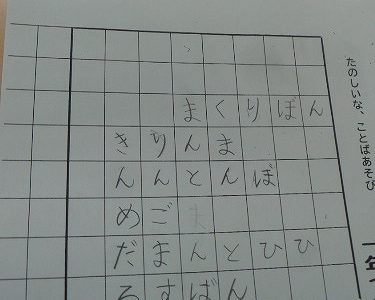 たのしいな、ことばあそび
まくりぼん
きりんま
んんとんぼ
めごま
だまんとひひ
るすばん